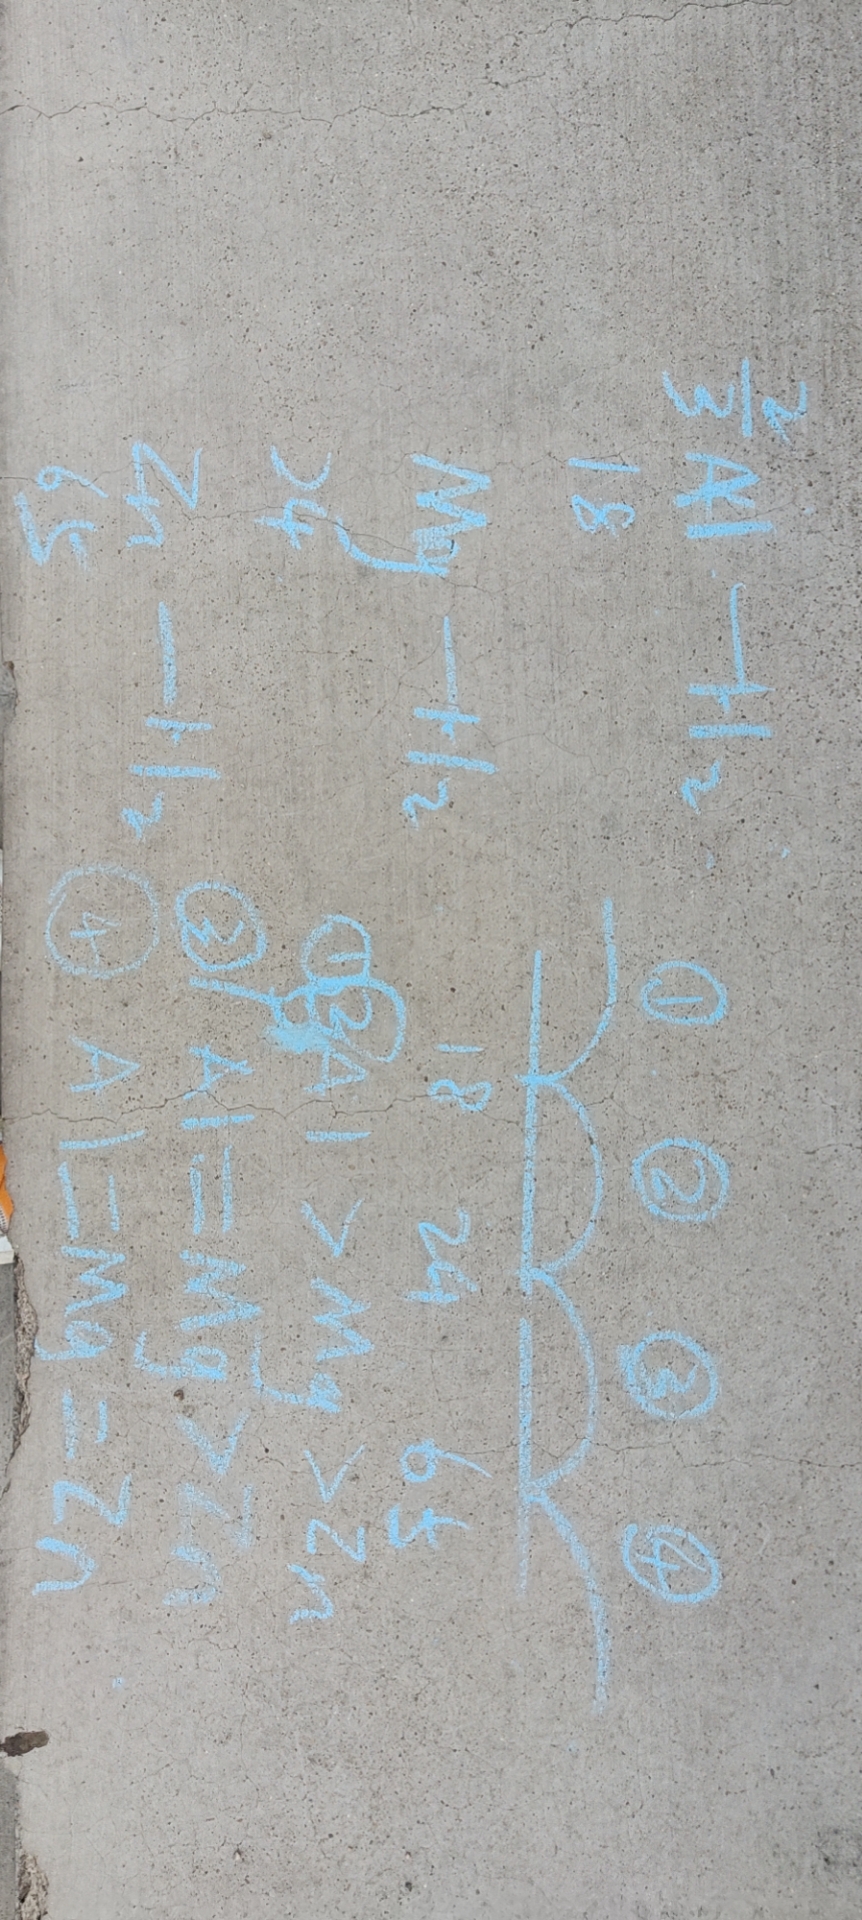 2/3 Al — H₂
18
Mg — H₂
24
Zn — H₂
65
① ② ③ ④
18 24 65
①② Al > Mg > Zn
③ Al = Mg > Zn
④ Al = Mg = Zn